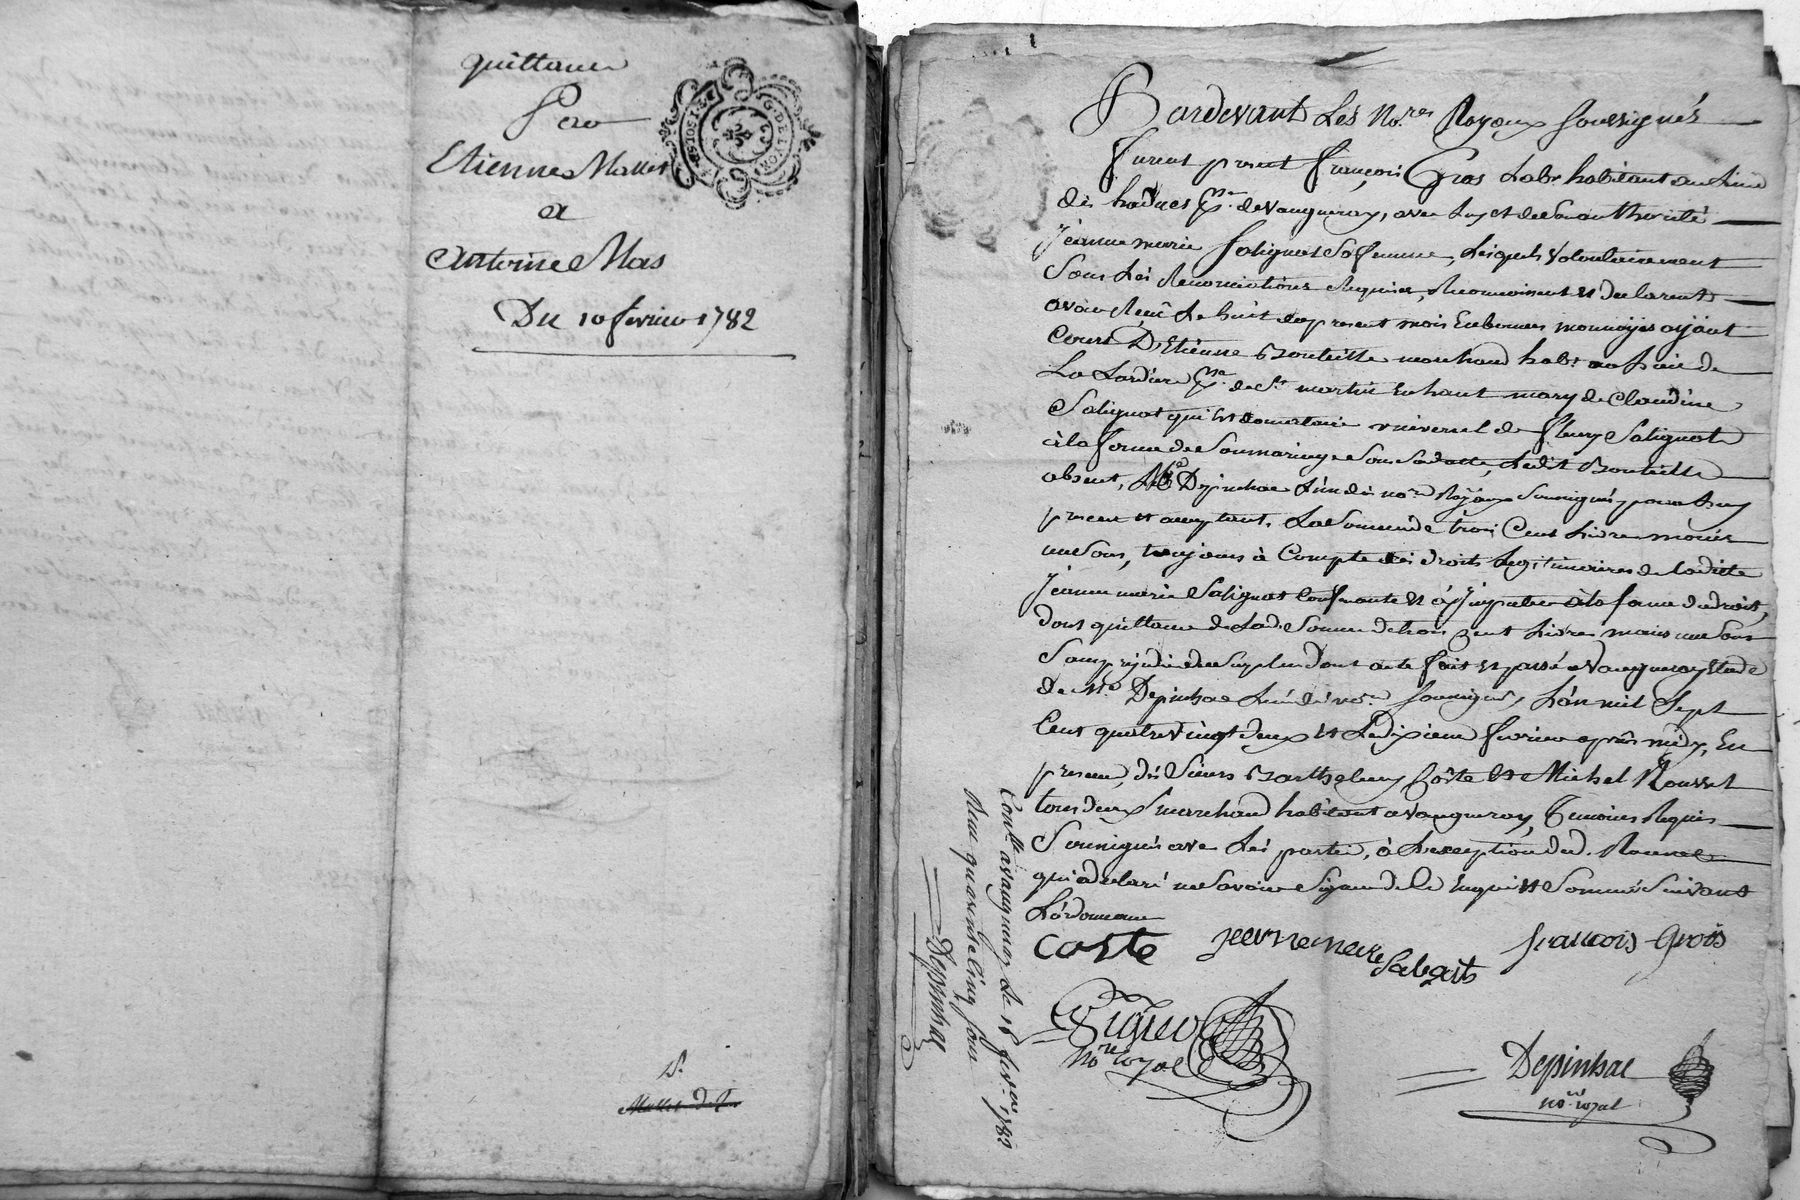 quittance
Pour
Etienne Mallet
a
Antoine Mas
Du 10 fevrier 1782
G. DE LYON
Pardevant Les No.res Royaux soussignés
furent present françois Gros Lab.r habitant au Lieu
des hadues p.sse de Vaugneray, avec Luy et de Son authorité
Jeanne marie Salignat Sa femme, Lesquels volontairement
Sous Les Renonciations Requises, Reconnoissent et declarent
avoir Reçu Le huit du present mois En bonnes monnoyes ayant
Cours D'Etienne Bouteille marchand hab.t au Lieu de
La Lardiere p.sse de S.t martin En haut mary de Claudine
Salignat qui Est donnataire universel de fleury Salignat
à la forme de Son mariage Sous Sa datte, Ledit Bouteille
absent, M.e Depinhac L'un des no.res Royaux Soussignés pour Luy
present et acceptant, La Somme de trois Cent Livres moins
un Sous, toujours à Compte des droits Legitimaires de La dite
Jeanne marie Salignat Confrontés et à s'imputer à la forme du droit,
dont quittance de Lad. Somme de trois Cent Livres moins un Sous
Sans prejudice du Surplus Dont acte fait et passé a Vaugneray Etude
de M.e Depinhac L'un des no.res Soussignés, L'an mil Sept
Cent quatre vingt deux et Le dixieme fevrier après midy, En
presence des Sieurs Barthelemy Coste et Michel Rousset
tous deux marchand habitant a Vaugneray, Temoins Requis
Soussignés avec Les parties, à L'exception dud. Rousset
qui a declaré ne Savoir Signer de Ce Enquis et Sommé Suivant
L'ordonnance
Coste jeanne marie Salignat francois Gros
No.re royal
Depinhac
no.re royal
Con.llé a Vaugneray Le 18 fev.er 1782
Reçu quarante Cinq Sous
Depinhac